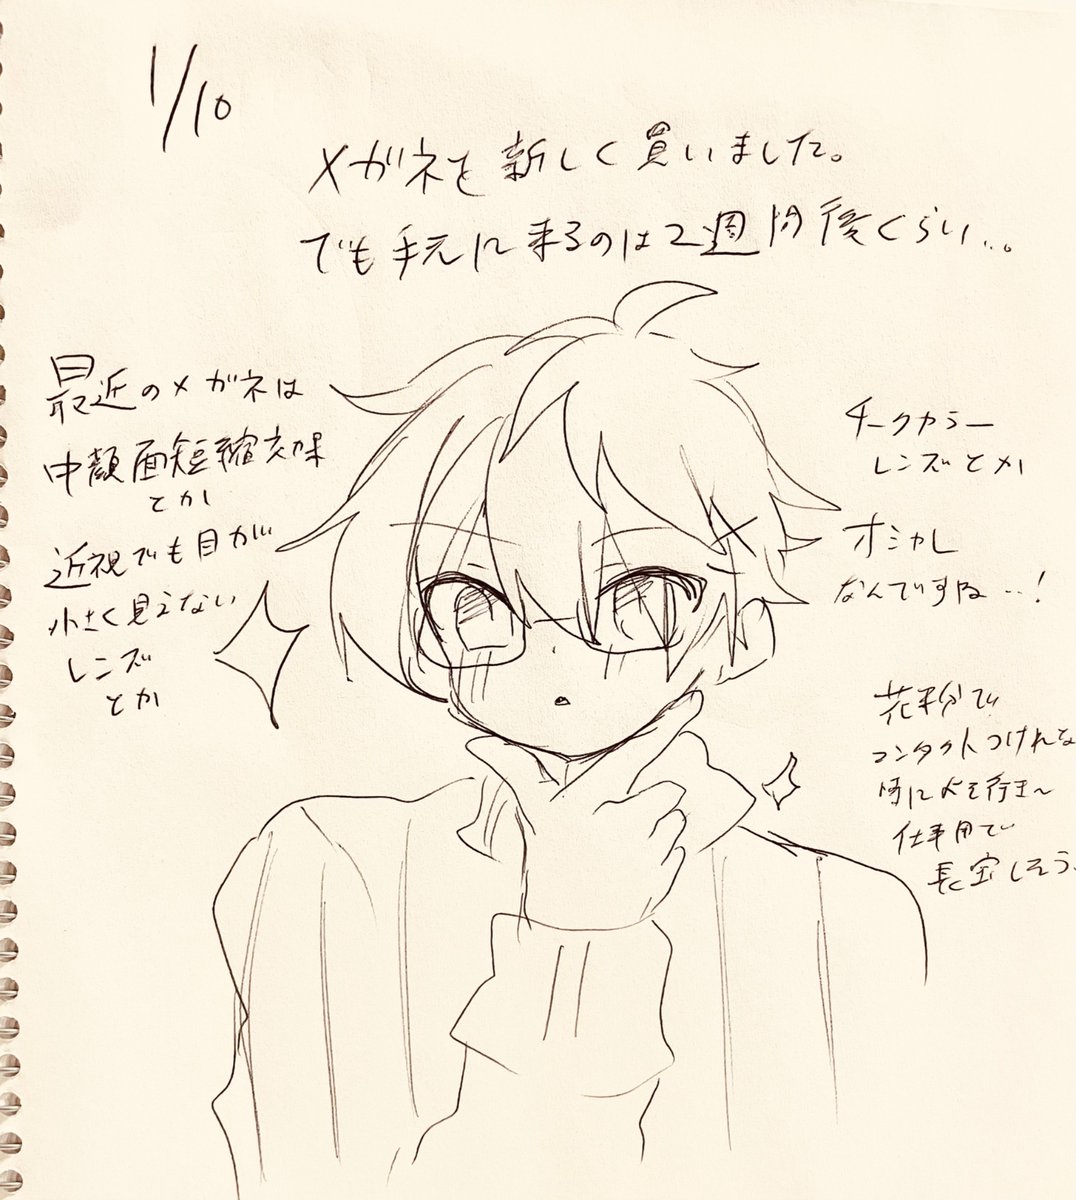 1/10
メガネを新しく買いました。
でも手元に来るのは2週間後くらい…。
最近のメガネは
中顔面短縮効果
とか
近視でも目が
小さく見えない
レンズ
とか
チークカラー
レンズとか
オシャレ
なんですね…!
花粉で
コンタクトつけれな
時に
仕事用で
長宝しそう